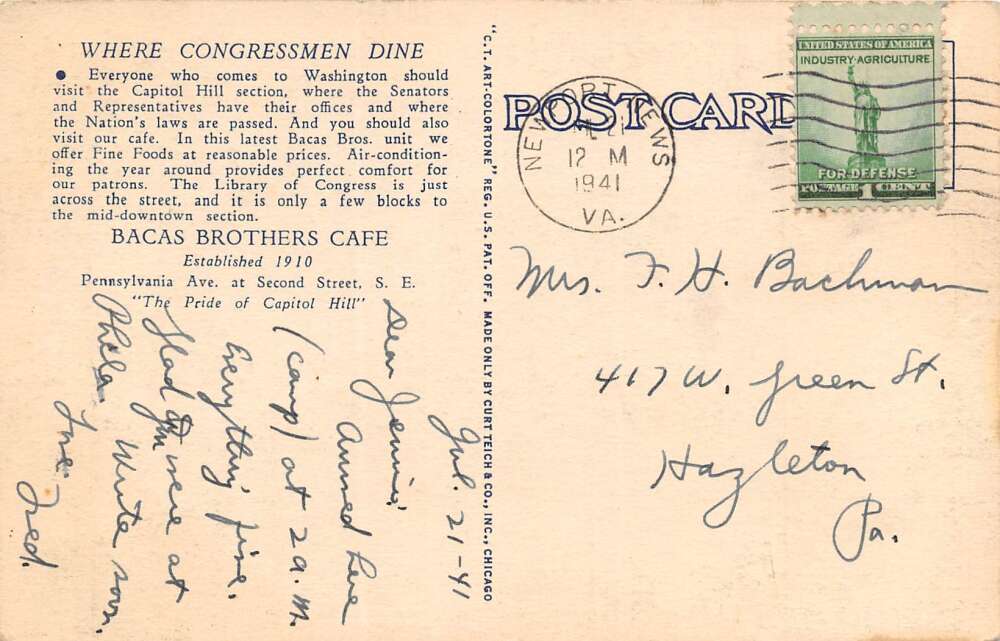 WHERE CONGRESSMEN DINE
● Everyone who comes to Washington should
visit the Capitol Hill section, where the Senators
and Representatives have their offices and where
the Nation's laws are passed. And you should also
visit our cafe. In this latest Bacas Bros. unit we
offer Fine Foods at reasonable prices. Air-condition-
ing the year around provides perfect comfort for
our patrons. The Library of Congress is just
across the street, and it is only a few blocks to
the mid-downtown section.
BACAS BROTHERS CAFE
Established 1910
Pennsylvania Ave. at Second Street, S. E.
"The Pride of Capitol Hill"
Jul. 21-41
Dear Jennie:
Arrived here
(camp) at 2 a.m.
Everything fine.
Glad you were at
Phila. Write soon.
Love Fred.
"C.T. ART-COLORTONE" REG. U.S. PAT. OFF. MADE ONLY BY CURT TEICH & CO., INC., CHICAGO
POST CARD
NEWPORT NEWS
21
12 M
1941
VA.
UNITED STATES OF AMERICA
INDUSTRY·AGRICULTURE
FOR DEFENSE
POSTAGE 1 CENT
Mrs. F. H. Bachman
417 W. Green St.
Hazleton
Pa.